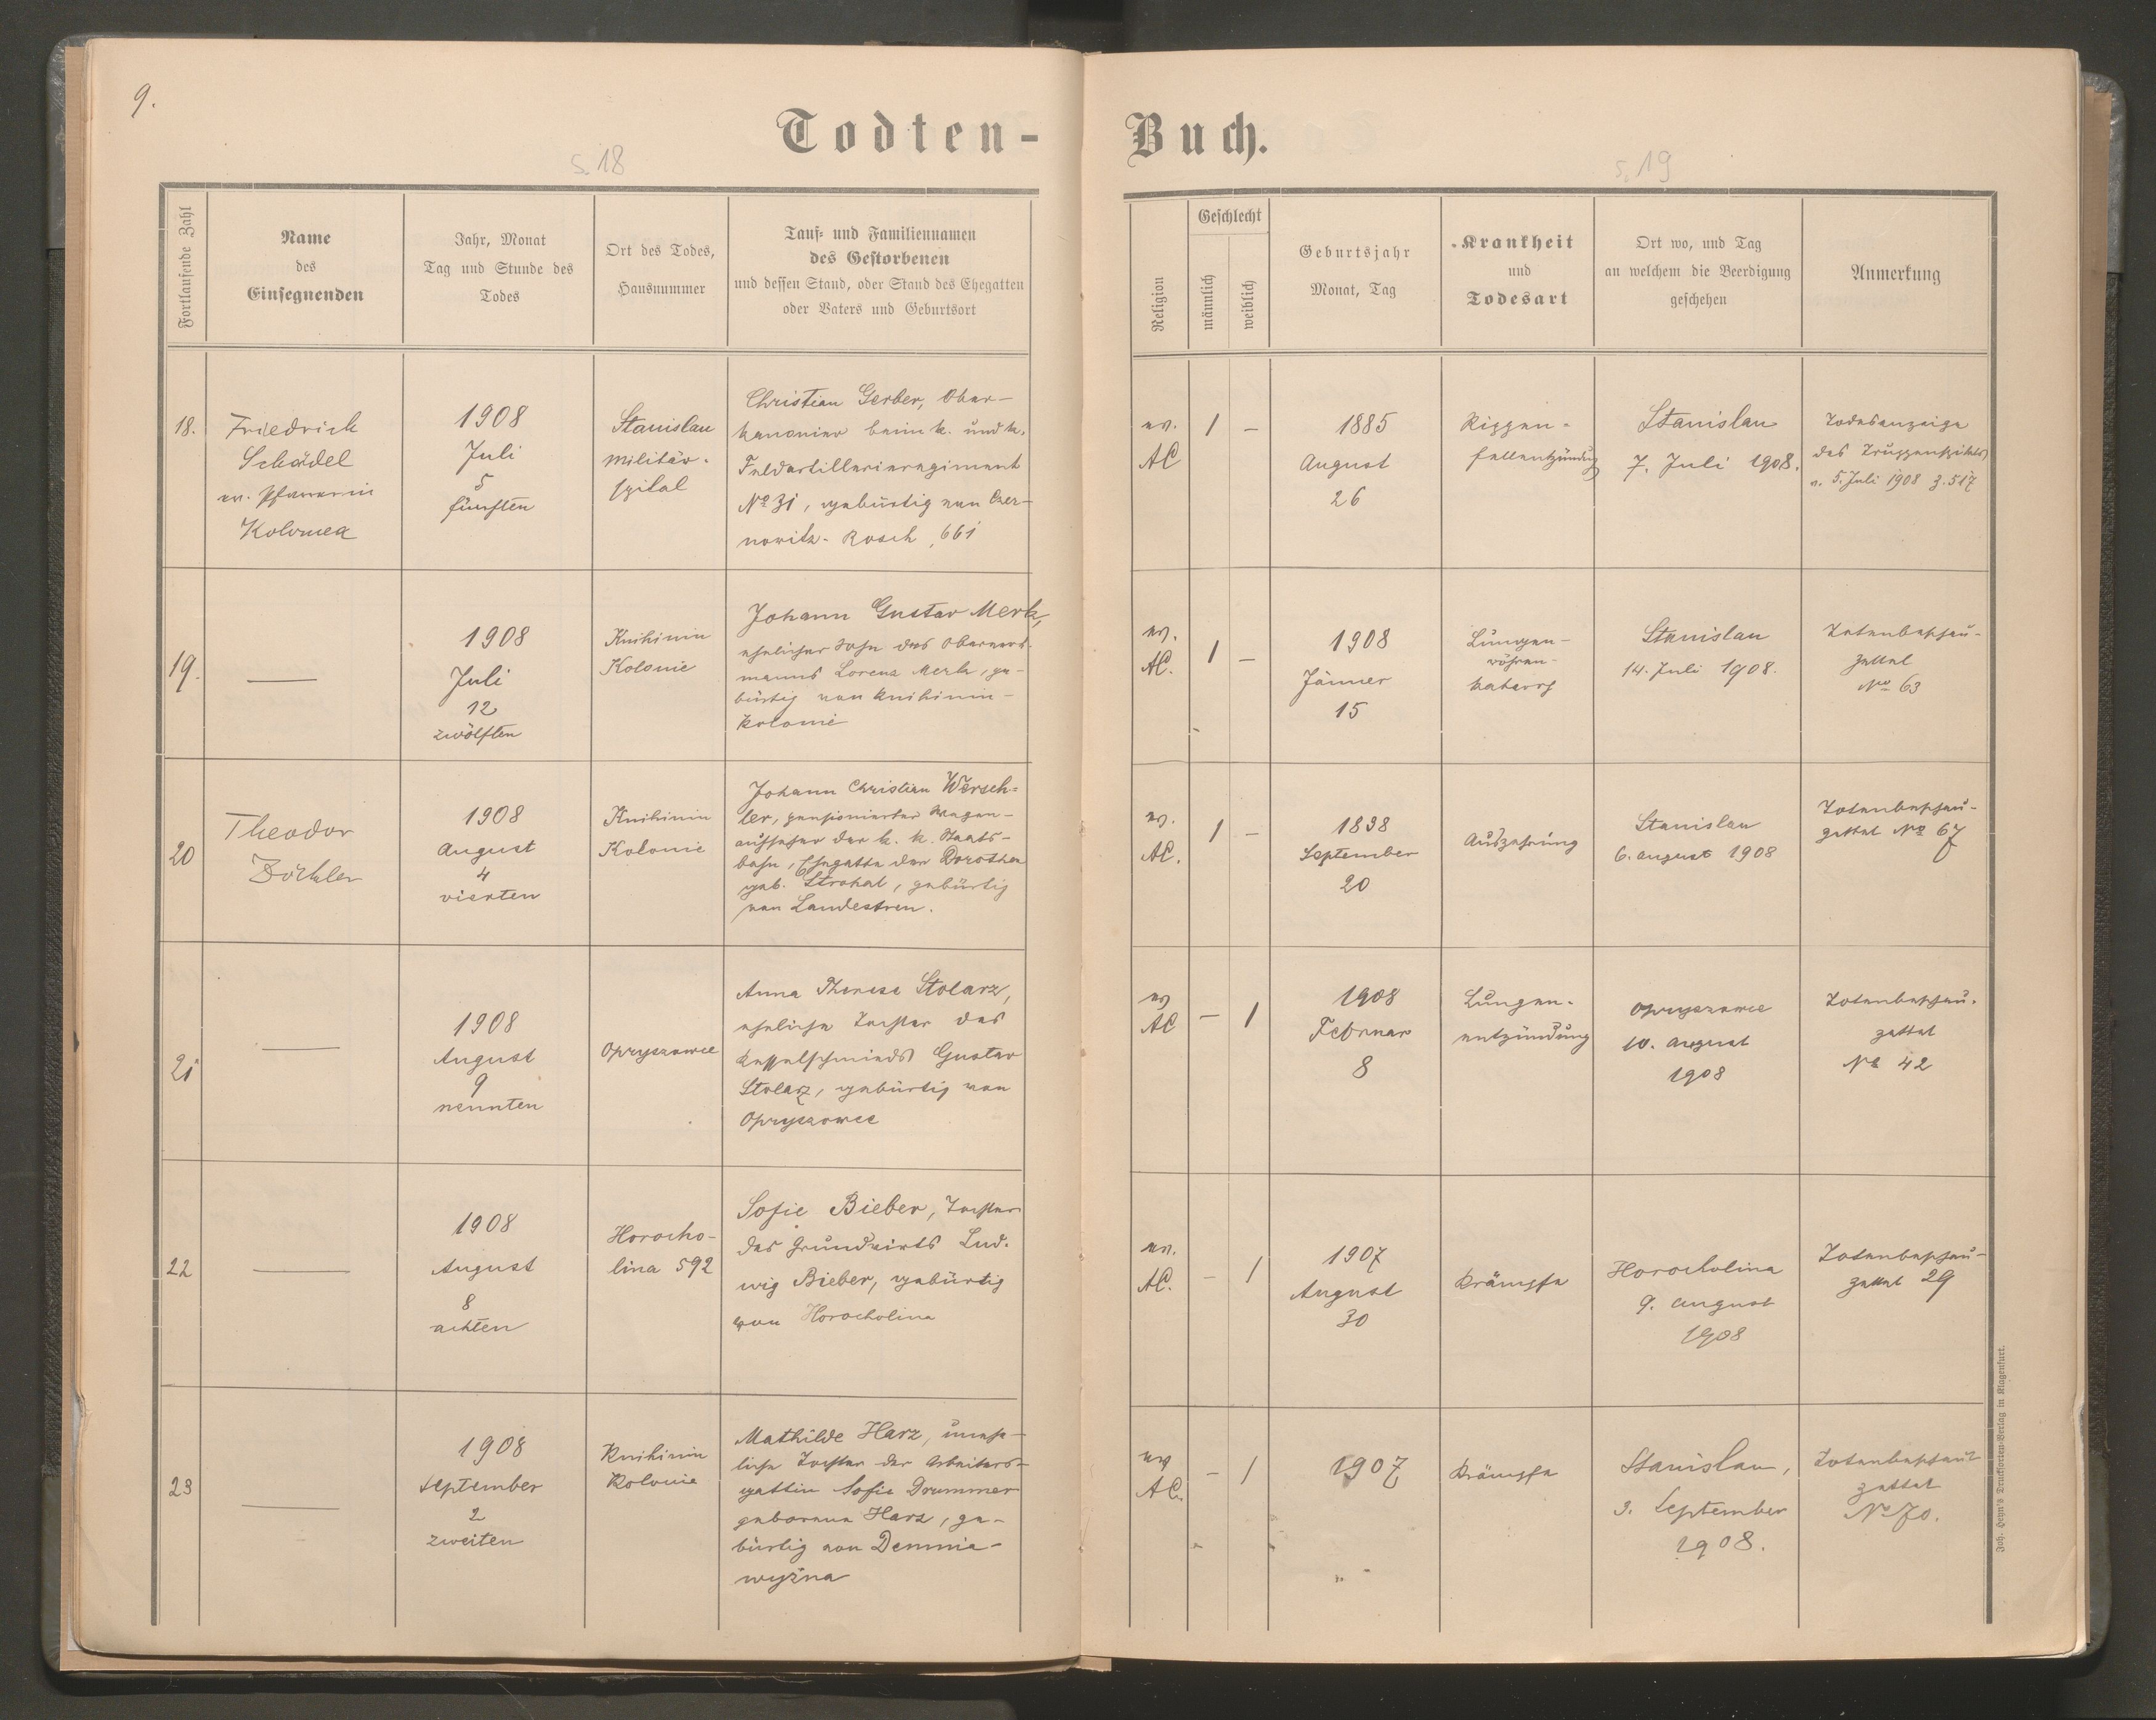 9.
Todten-
Buch.
s. 18
s. 19
Fortlaufende Zahl
Name
des
Einsegnenden
Jahr, Monat
Tag und Stunde des
Todes
Ort des Todes,
Hausnummer
Tauf- und Familiennamen
des Gestorbenen
und dessen Stand, oder Stand des Ehegatten
oder Vaters und Geburtsort
Religion
Geschlecht
männlich
weiblich
Geburtsjahr
Monat, Tag
Krankheit
und
Todesart
Ort wo, und Tag
an welchem die Beerdigung
geschehen
Anmerkung
18.
Friedrich
Schädel
ev. Pfarrer in
Kolomea
1908
Juli
5
fünften
Stanislau
Militär-
spital
Christian Gerber, Ober-
kanonier beim k. und k.
Feldartillerieregiment
No 31, gebürtig von Czer-
nowitz-Rosch, 661
ev.
AC
1
–
1885
August
26
Rippen-
fellentzündung
Stanislau
7. Juli 1908.
Todesanzeige
des Truppenspitals
v. 5. Juli 1908 Z. 517
19.
—
1908
Juli
12
zwölften
Knihinin
Kolonie
Johann Gustav Merk,
ehelicher Sohn des
Lorenz Merk, ge-
bürtig von Knihinin-
Kolonie
ev.
AC.
1
–
1908
Jänner
15
Lungen-
röhren-
katarrh
Stanislau
14. Juli 1908.
Totenbeschau-
zettel
No 63
20
Theodor
Zöckler
1908
August
4
vierten
Knihinin
Kolonie
Johann Christian Wersch-
ler, pensionierter Wagen-
aufseher der k. k. Staats-
bahn, Ehegatte der Dorothea
geb. Strohal, gebürtig
von Landestreu.
ev.
AC.
1
–
1838
September
20
Auszehrung
Stanislau
6. August 1908
Totenbeschau-
zettel No 67
21
—
1908
August
9
neunten
Opryszowce
Anna Therese Stolarz,
eheliche Tochter des
Kesselschmieds Gustav
Stolarz, gebürtig von
Opryszowce
ev
AC
–
1
1908
Februar
8
Lungen-
entzündung
Opryszowce
10. August
1908
Totenbeschau-
zettel
No 42
22
—
1908
August
8
achten
Horocho-
lina 592
Sofie Bieber, Tochter
des Grundwirts Lud-
wig Bieber, gebürtig
von Horocholina
ev.
AC.
–
1
1907
August
30
Krämpfe
Horocholina
9. August
1908
Totenbeschau-
zettel 29
23
—
1908
September
2
zweiten
Knihinin
Kolonie
Mathilde Harz, unehe-
liche Tochter der Arbeiters-
gattin Sofie Drummer
geborene Harz, ge-
bürtig von Demnia-
wyżna
ev
AC.
–
1
1907
Krämpfe
Stanislau,
3. September
1908.
Totenbeschau-
zettel
No 70.
Joh. Heyn's Drucksorten-Verlag in Klagenfurt.